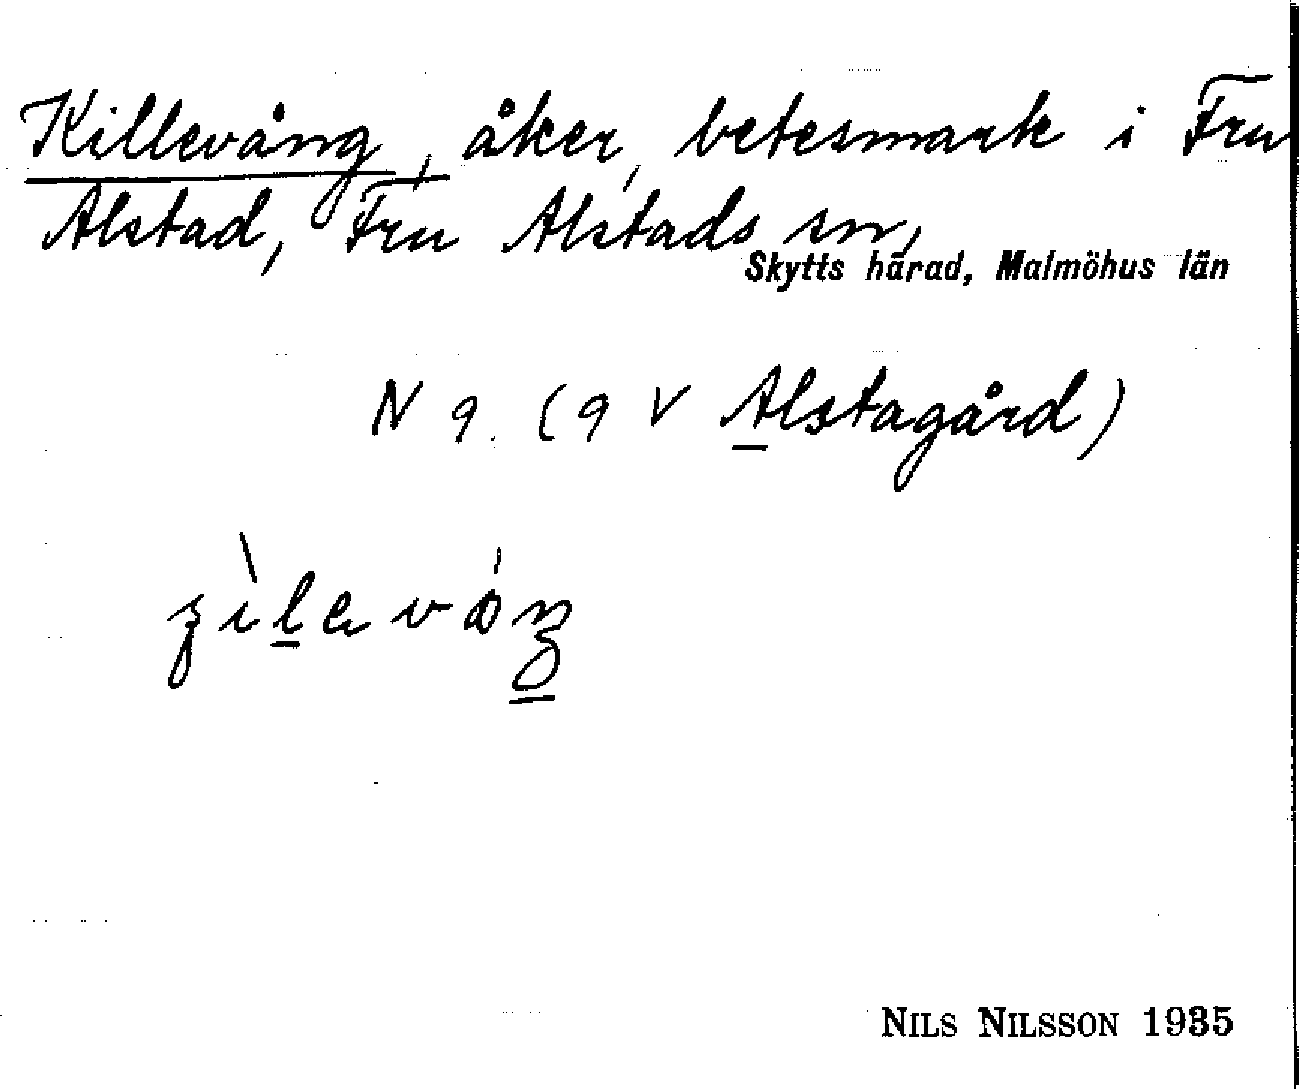 Killevång, åker, betesmark i Fru
Alstad, Fru Alstads sn,
Skytts härad, Malmöhus län
N 9. (9 V Alstagård)
NILS NILSSON 1935